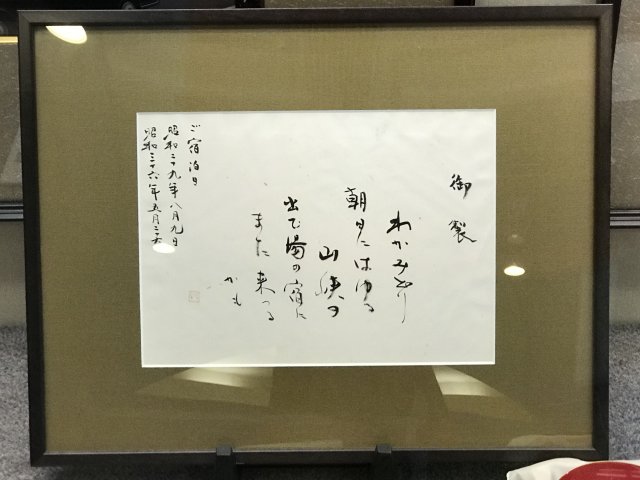 御製
わかみどり
朝日にはゆる
山峡の
出で場の宿に
またに来つる
かも
ご宿泊日
昭和二十九年八月九日
昭和三十六年五月二十